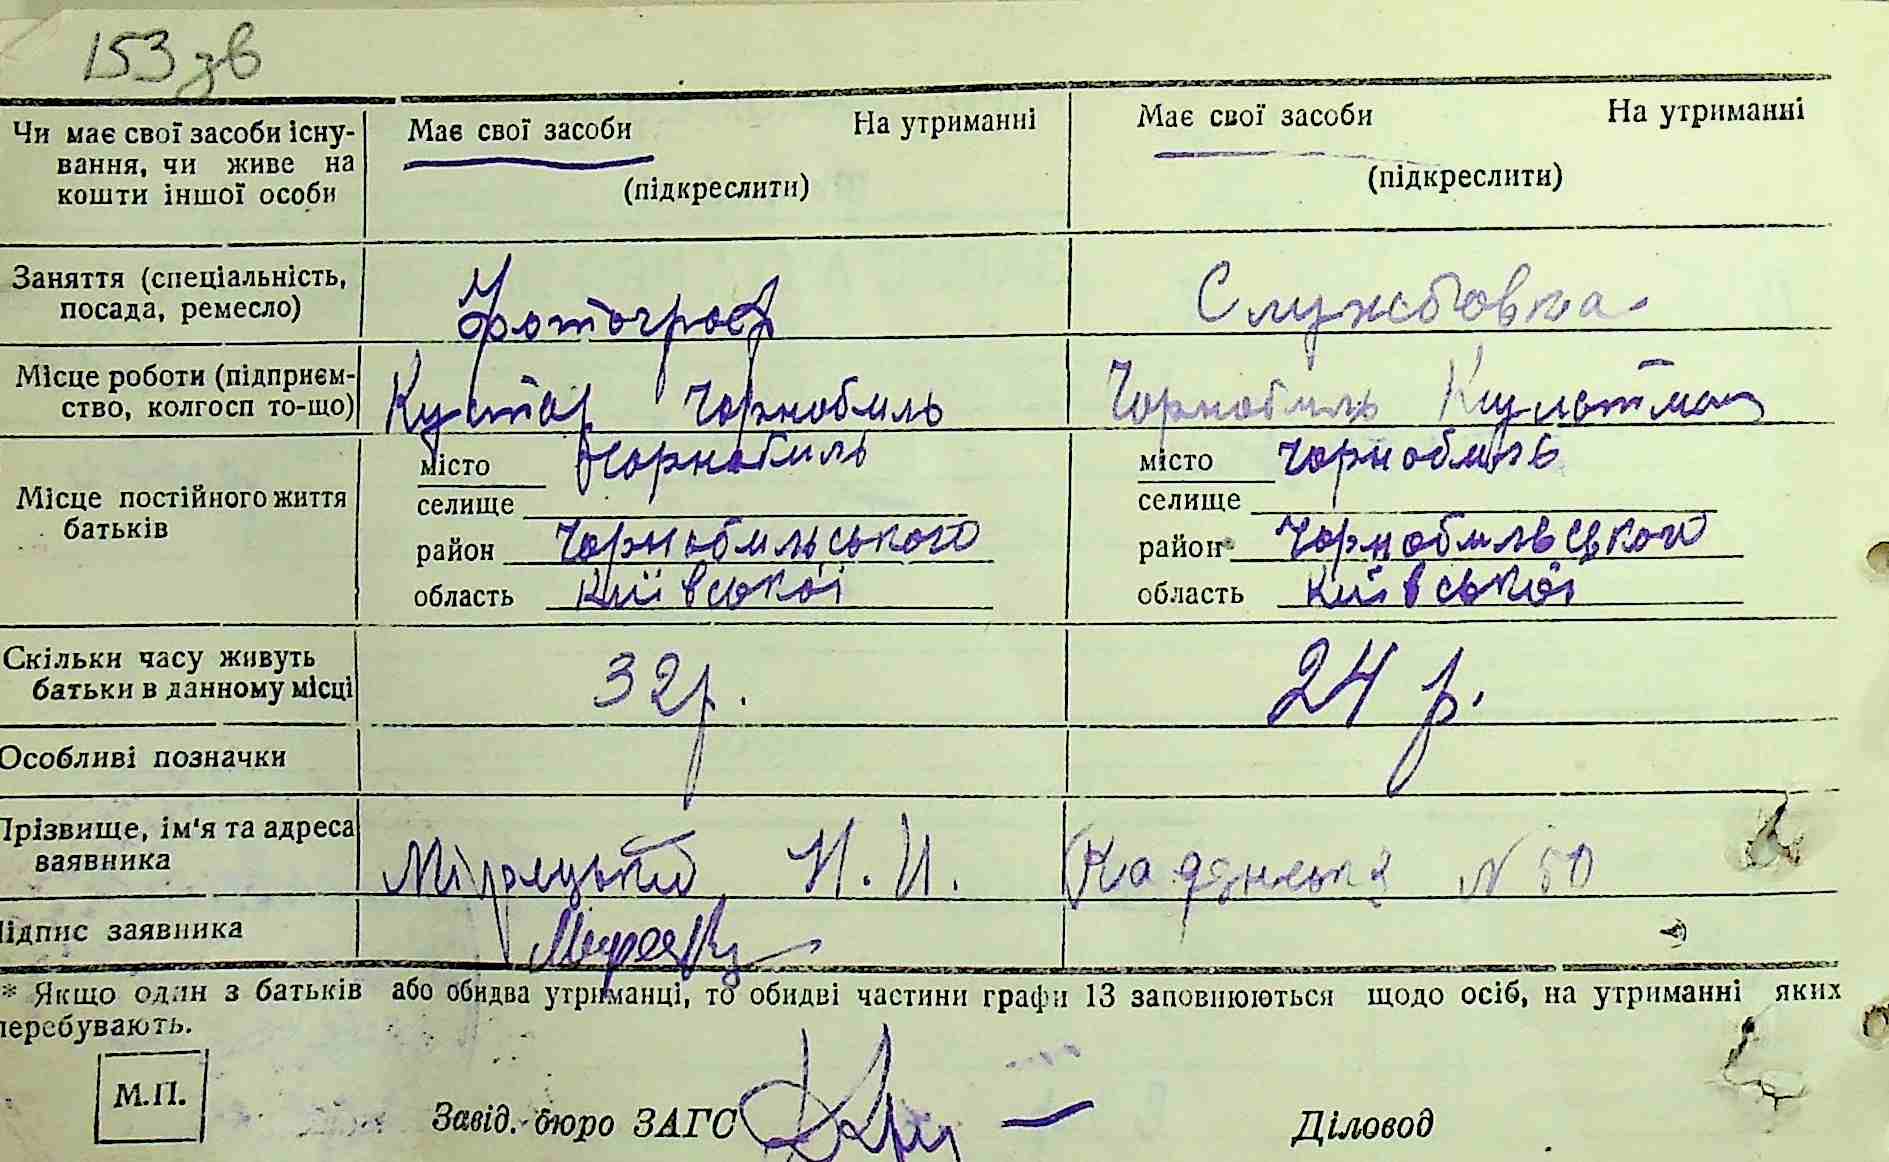 153 зв
Чи має свої засоби існу- Має свої засоби На утриманні Має свої засоби На утриманні
вання, чи живе на
кошти іншої особи (підкреслити) (підкреслити)
Заняття (спеціальність, Фотограф Службовка
посада, ремесло)
Місце роботи (підприєм- Кустар Чорнобиль Чорнобиль
ство, колгосп то-що)
місто Чорнобиль місто Чорнобиль
Місце постійного життя селище селище
батьків
район Чорнобильського район Чорнобильського
область Київської область Київської
Скільки часу живуть 32 р. 24 р.
батьки в данному місці
Особливі позначки
Прізвище, ім'я та адреса
заявника И. И. N 50
Підпис заявника
* Якщо один з батьків або обидва утриманці, то обидві частини графи 13 заповнюються щодо осіб, на утриманні яких
перебувають.
М.П.
Завід. бюро ЗАГС Діловод